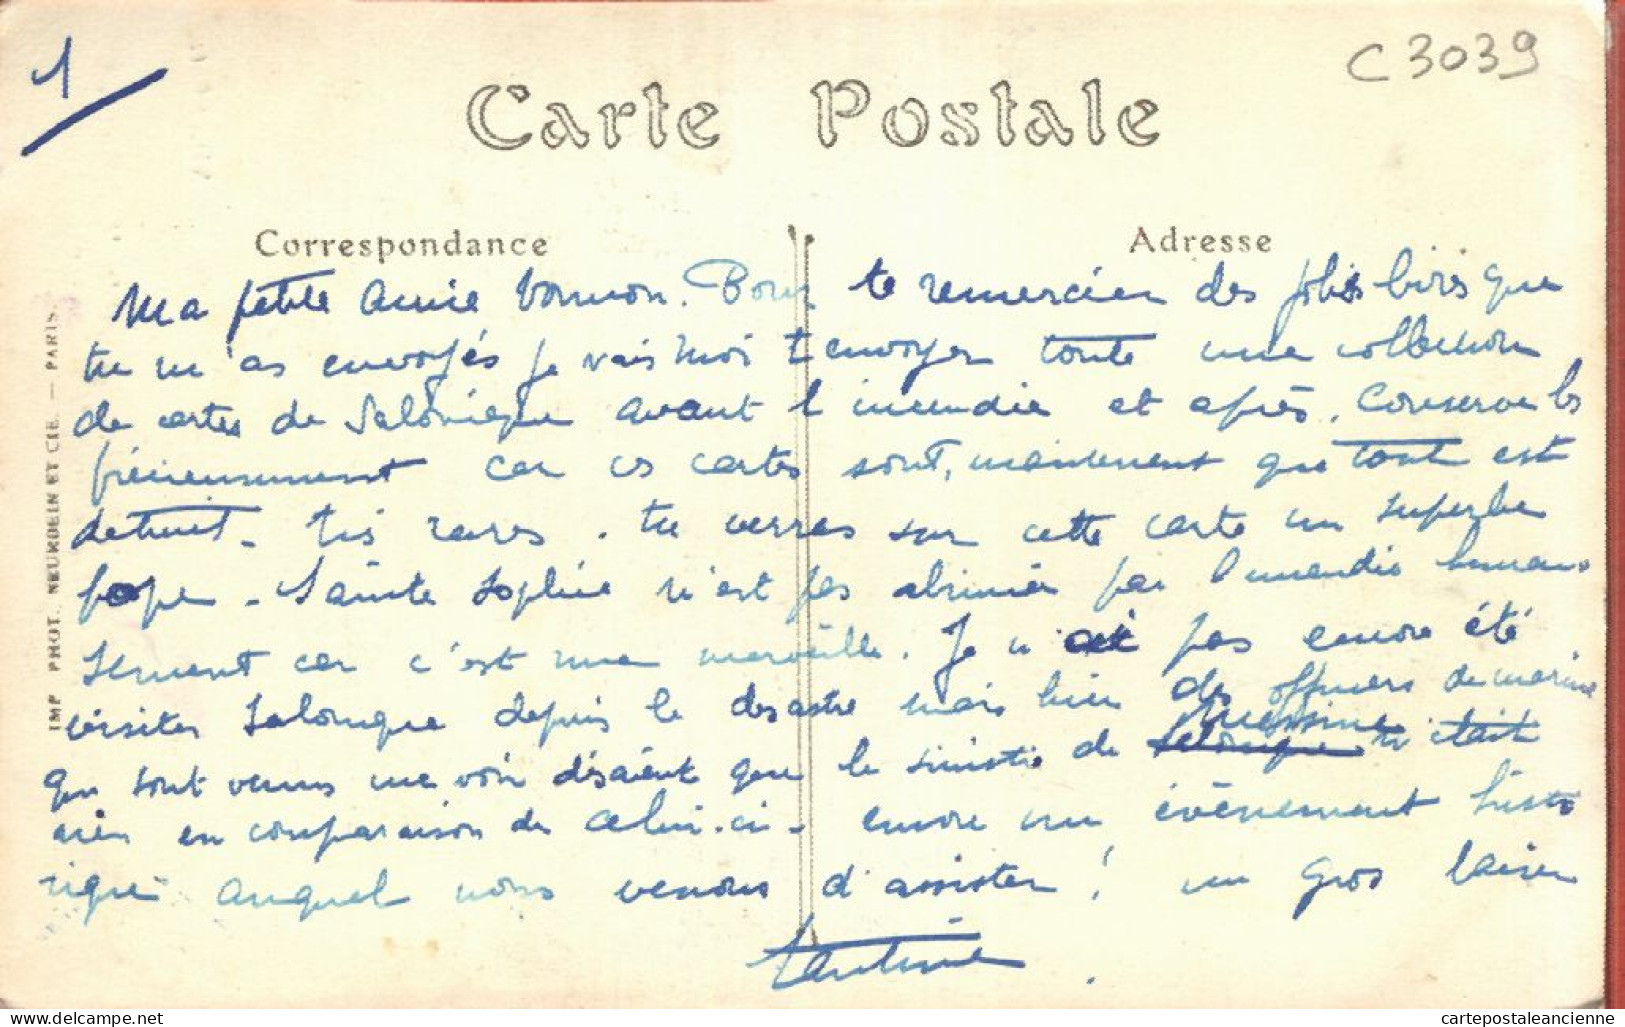 1
C 3039
Carte Postale
Correspondance
Adresse
Ma petite Annie . Pour te remercier des jolies que
tu m'as envoyés je vais moi t'envoyer toute une collection
de cartes de Salonique avant l'incendie et après. Conserve les
précieusement car ces cartes sont, maintenant que tout est
detruit - très rares . tu verras sur cette carte un superbe
pope - Sainte Sophie n'est pas abimée par l'incendie heureu
sement car c'est une merveille. Je n'ai pas encore été
visiter Salonique depuis le desastre mais hier des officiers de marine
qui sont venus me voir disaient que le sinistre de Messine n'était
rien en comparaison de celui-ci - encore un évènement histo
rique auquel nous venons d'assister ! un gros baiser
Tantine .
IMP. PHOT. NEURDEIN ET CIE. — PARIS.
www.delcampe.net
cartepostaleancienne